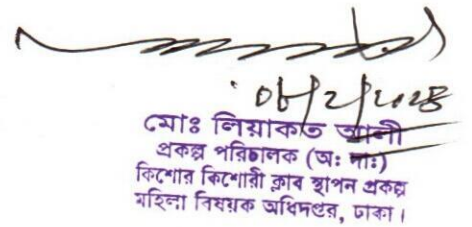 মোঃ লিয়াকত আলী
প্রকল্প পরিচালক (অঃ দাঃ)
কিশোর কিশোরী ক্লাব স্থাপন প্রকল্প
মহিলা বিষয়ক অধিদপ্তর, ঢাকা।